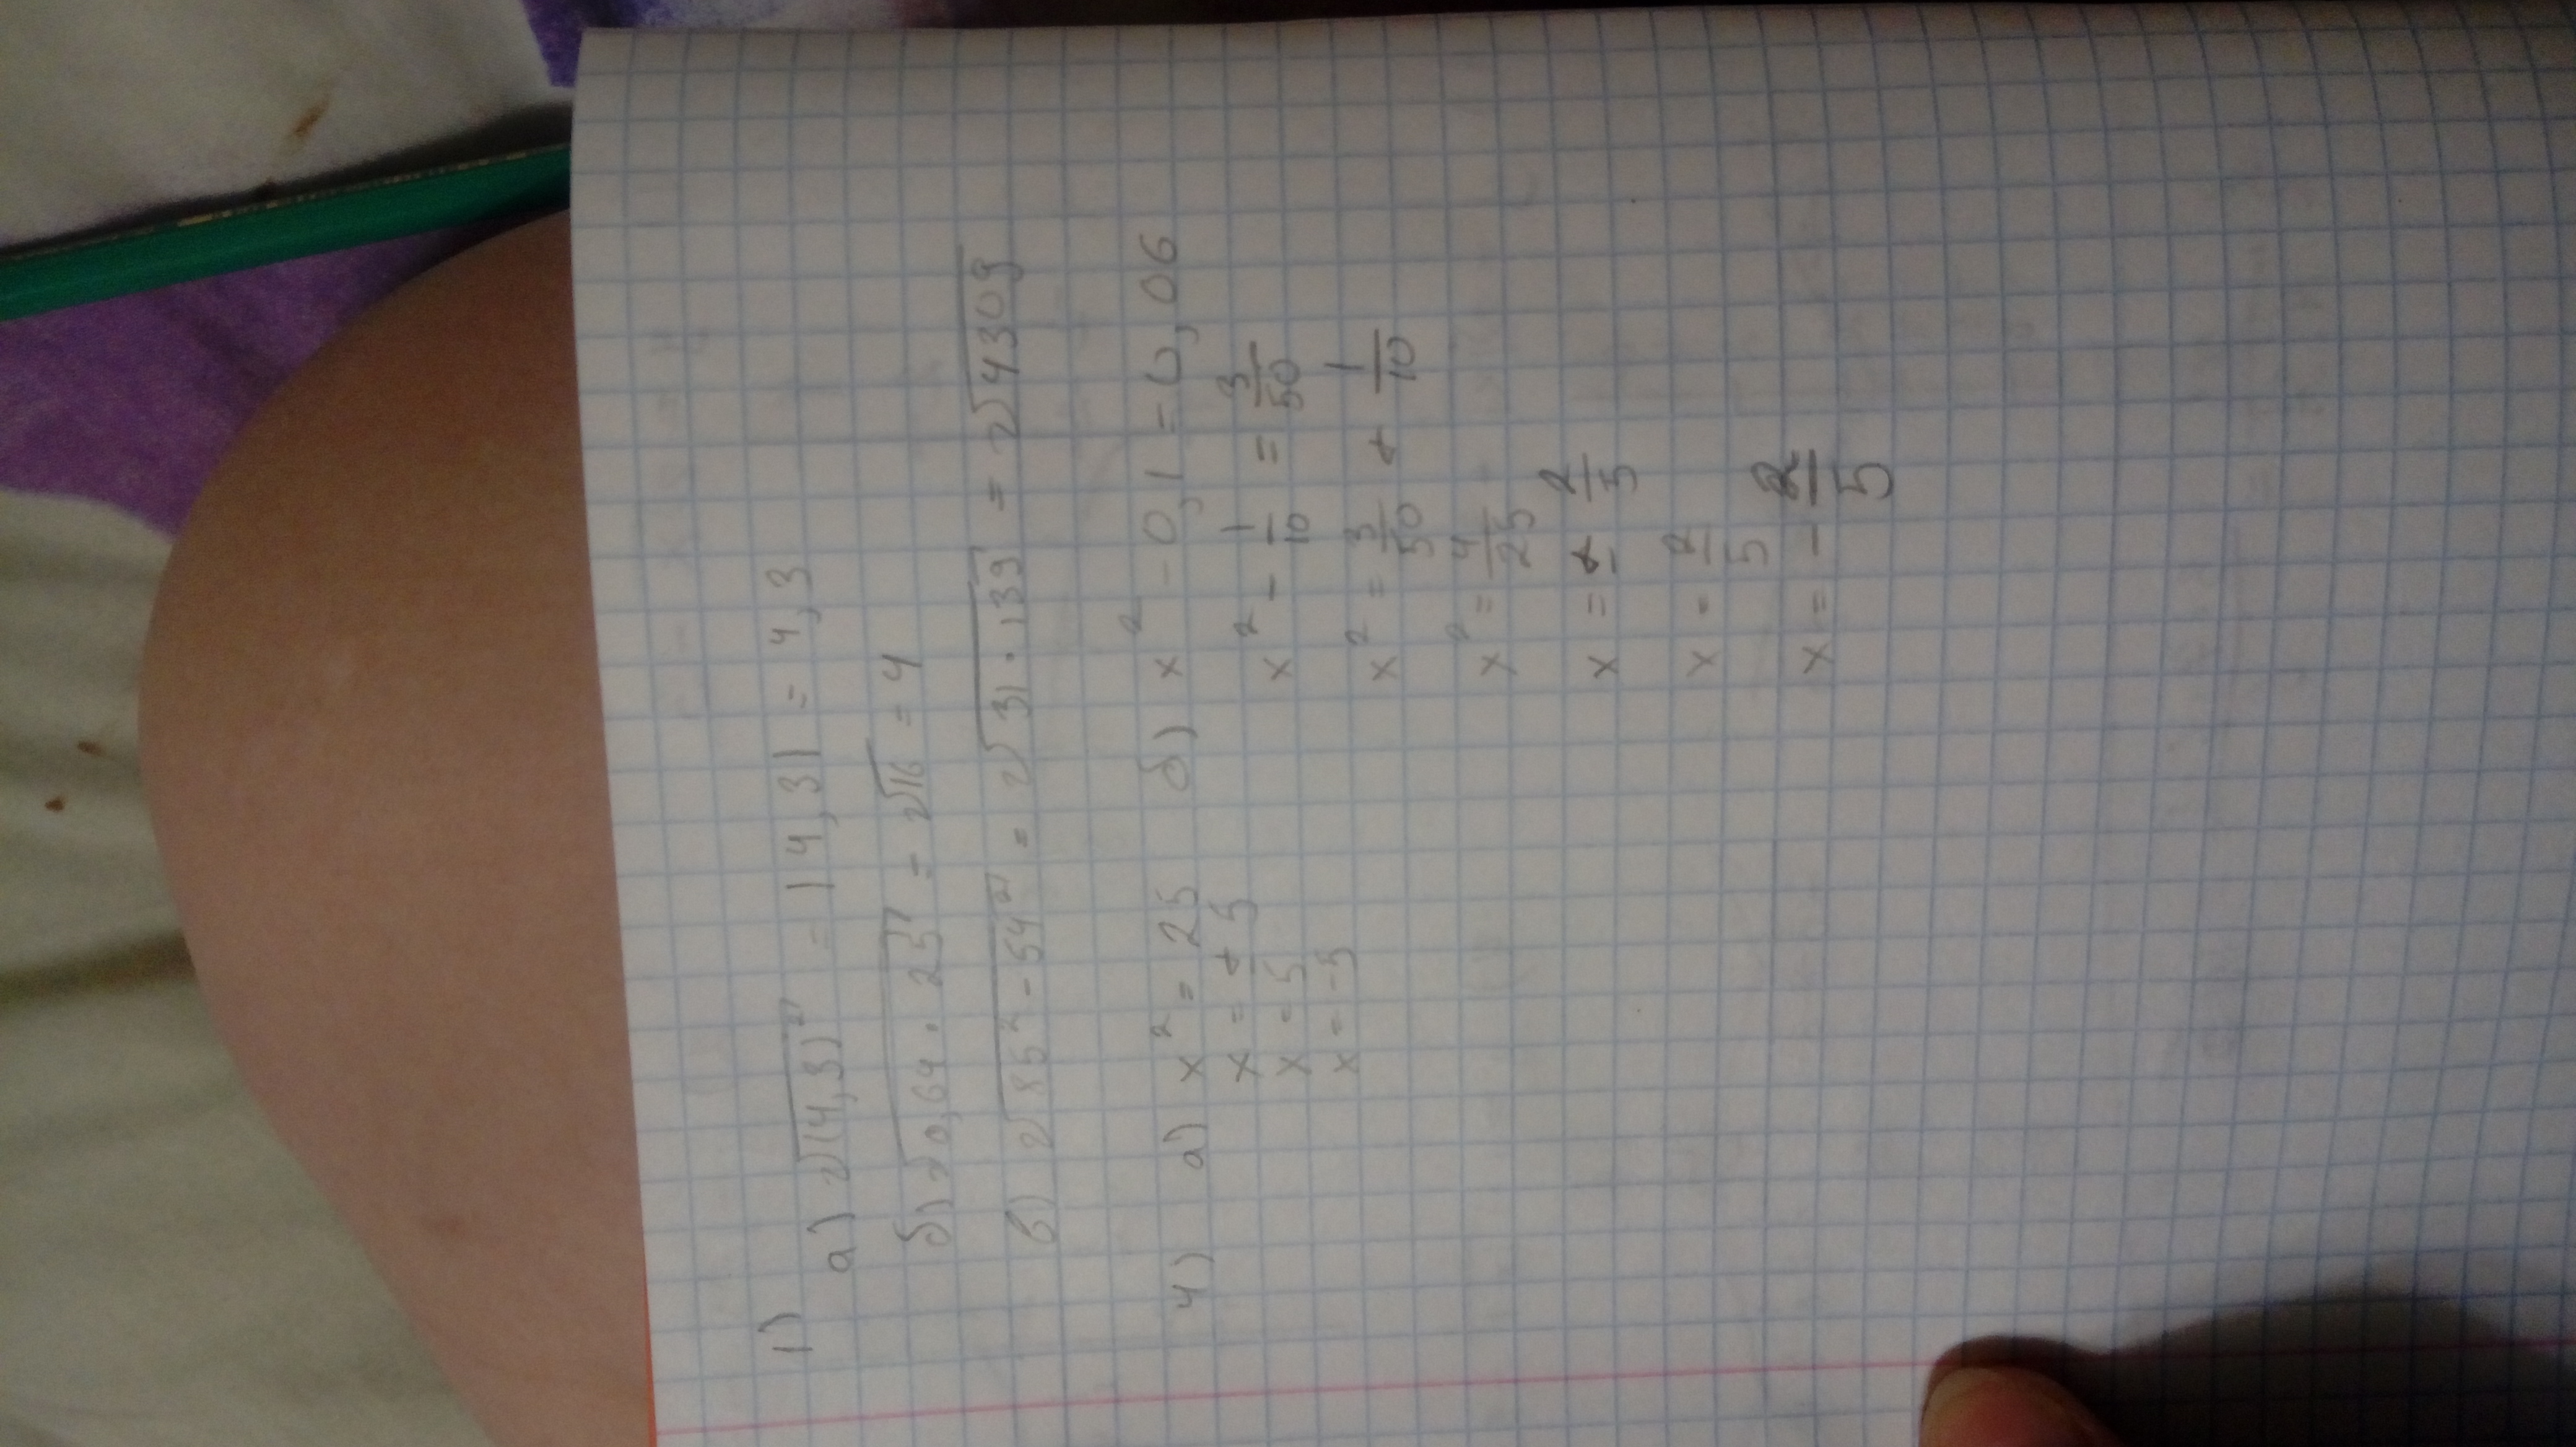 1)
а) √(4,3)² = |4,3| = 4,3
б) √0,64 · 25 = √16 = 4
в) √85² - 54² = √31 · 139 = √4309
4) а) x² = 25
x = ± 5
x = 5
x = -5
б) x² - 0,1 = 0,06
x² - 1/10 = 3/50
x² = 3/50 + 1/10
x² = 4/25
x = ± 2/5
x = 2/5
x = - 2/5